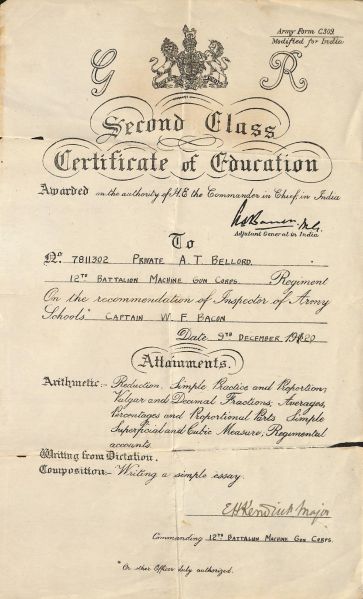 Army Form C309.
Modified for India
G R
Second Class
Certificate of Education
Awarded on the authority of H.E the Commander in Chief, in India
Adjutant General in India
To
No. 7811302 Private A. T. Bellord.
12th Battalion Machine Gun Corps. Regiment
On the recommendation of Inspector of Army
Schools* Captain W. F. Bacon
Date 9th December 1920
Attainments.
Arithmetic:- Reduction, Simple Practice and Proportion;
Vulgar and Decimal Fractions; Averages,
Percentages and Proportional Parts Simple
Superficial and Cubic Measure, Regimental
accounts.
Writing from Dictation.
Composition:- Writing a simple essay.
Major
Commanding 12th Battalion Machine Gun Corps.
*Or other Officer duly authorized.